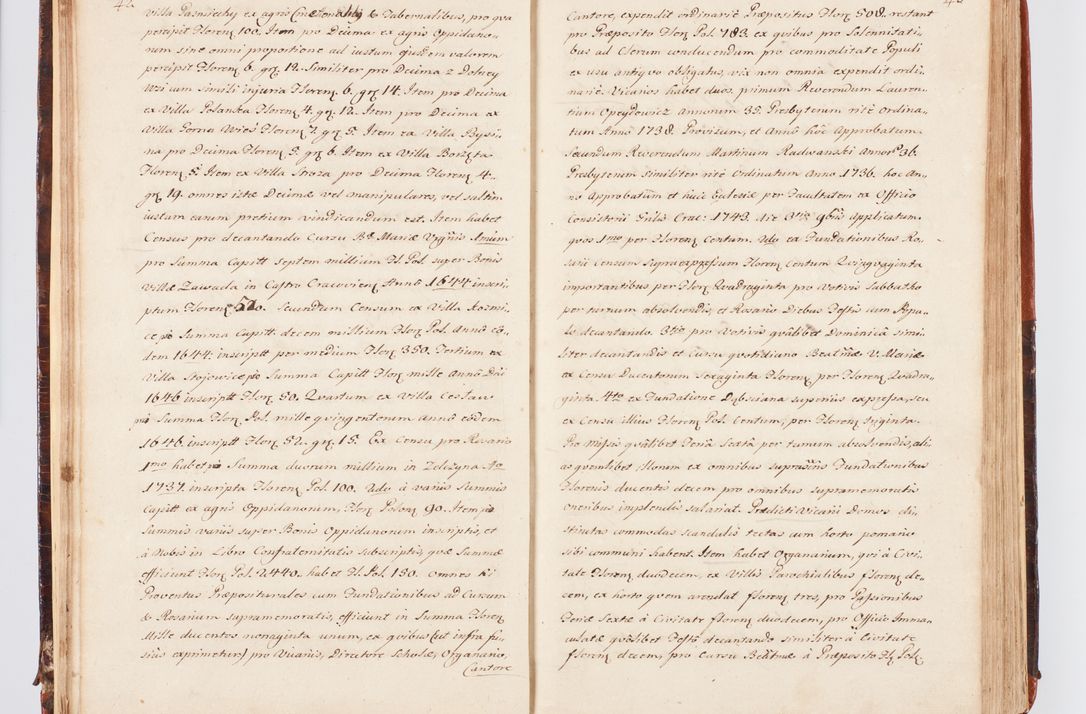 42
Villa Pazniechy ex agris & Tabernalibus, pro qua
percipit Floren 100. Item pro Decima ex agris Oppidano-
rum sine omni proportione ad iustum ejusdem valorem
percipit Floren 6. grz 12. Similiter pro Decima z Dolney
Wsi cum simili injuria Floren 6. grz 14. Item pro Decima
ex Villa Polanka Floren 4. grz 12. Item pro Decima ex
Villa Gorna Wies Floren 7. grz 5. Item ex Villa Bysi-
na pro Decima Floren 3. grz 6. Item ex Villa Borzęta
Floren 5. Item ex Villa Stroza pro Decima Floren 4.
grz 19. omnes istæ Decimæ vel manipulares, vel saltim
iustam earum pretium vindicandum est. Item habet
Census pro decantando Cursu B. Mariæ Virginis
pro Summa Capitt Septem millium Fl. Pol. super Bonis
Villæ Zawada in Castro Cracovien Anno 1644 inscri-
ptum Floren 520. Secundum Censum ex Villa
pro Summa Capitt. decem millium Flor Pol. Anno eo-
dem 1644. inscriptt per medium Flor 350. Tertium ex
Villa Stojowice pro Summa Capitt Flor mille Anno Dni
1646 inscriptt Flor 50. Quartum ex Villa
pro Summa Flor Pol. mille quingentorum anno eodem
1646. inscriptt Flor 52. grz 15. Ex Censu pro Rosario
1mo habet pro Summa duorum millium in
1737. inscripta Floren Pol. 100. 2do à variis Summis
Capitt ex agris Oppidanorum, Flor Polon 90. Item pro
Summis variis super Bonis Oppidanorum inscriptis, et
à Nobis in Libro Confraternitatis subscriptis, quæ Summæ
efficiunt Flor Pol. 2440. habet Fl. Pol. 150. Omnes hi
Proventus Præpositurales cum Fundationibus ad Cursum
& Rosarium supramemoratis, efficiunt in Summa Floren
Mille ducentos nonaginta unum, ex quibus (ut infra fu-
sius exprimetur) pro Vicariis, Directore Scholæ, Organario,
Cantore
Cantore, expendit ordinariè Præpositus Flor 508. restant
pro Præposito Flor Pol. 783. ex quibus pro Solennitati-
bus ad Clerum conducendum pro commoditate Populi
ex usu antiquo obligatus, vix non omnia expendit ordi-
nariè. Vicarios habet duos, primum Reverendum Lauren-
tium Opeydowicz Annorum 35. Presbyterum ritè Ordina-
tum Anno 1738. Provisum, et Anno hôc Approbatum.
Secundum Reverendum Martinum Radwanski Annor 36.
Presbyterum similiter ritè Ordinatum Anno 1736. hoc An-
no Approbatum et huic Ecclesiæ per Facultatem ex Officio
Consistorii Crac: 1743. die applicatum.
quos 1mo per Floren Centum. 2do ex Fundationibus Ro-
sarii Censum Supraexpressum Floren Centum Quinquaginta
importantibus per Flor Quadraginta pro Votivis Sabbatho
per turnum absolvendis, et Rosario Diebus Festis cum Popu-
lo decantando. 3tio pro Votivis quâlibet Dominicâ simi-
liter decantandis et Cursu quotidiano Beatæ V. Mariæ
ex Censu Ducentorum Sexaginta Floren, per Floren Quadra-
ginta. 4to ex Fundatione superius expressa, seu
ex Censu illius Floren Pol. Centum, per Floren triginta.
Pro Missis quâlibet Feriâ Sextâ per turnum absolvendis, ali-
as quemlibet illorum ex omnibus suprascriptis Fundationibus
Florenis ducentis decem pro omnibus supramemoratis
oneribus implendis salariat. Prædicti Vicarii Domos di-
stinctas commodas Scandulis tectas cum horto pomario
sibi communi habent. Item habet Organarium, qui à Civi-
tate Floren duodecem, ex Villis Parochialibus floren de-
cem, ex horto quem arendat floren tres, pro Passionibus
Feriæ Sextæ à Civitate floren duodecem, pro Officio Imma-
culatæ quâlibet Festô decantando similiter à Civitate
floren decem, pro Cursu Beatissimæ à Præposito Fl. Pol.